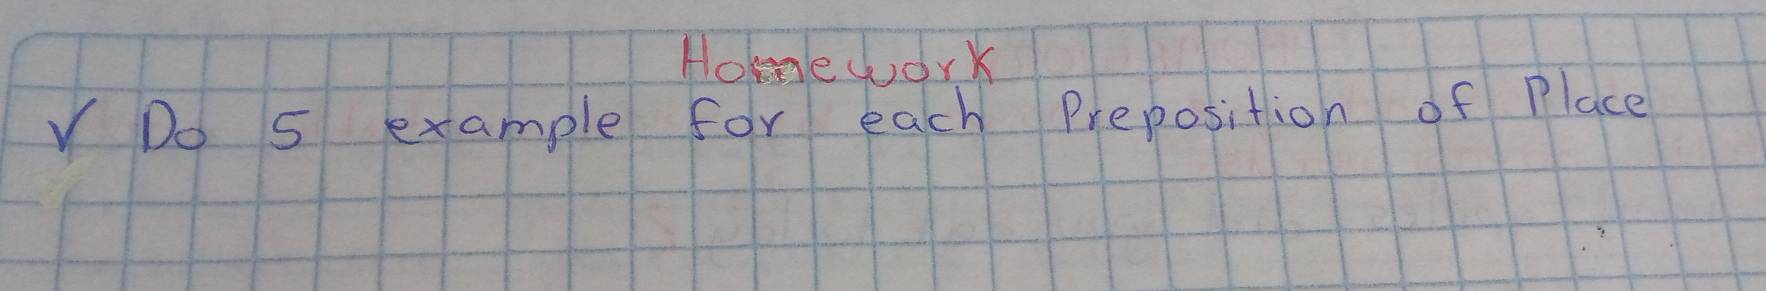 Homework
✓ Do 5 example for each Preposition of Place